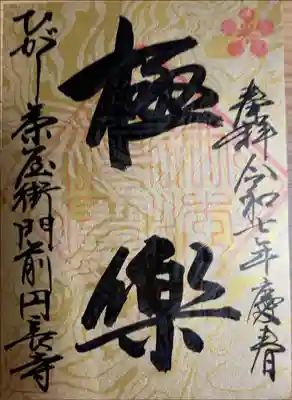 奉拝 令和七年慶春
極楽
ひがし茶屋街門前円長寺